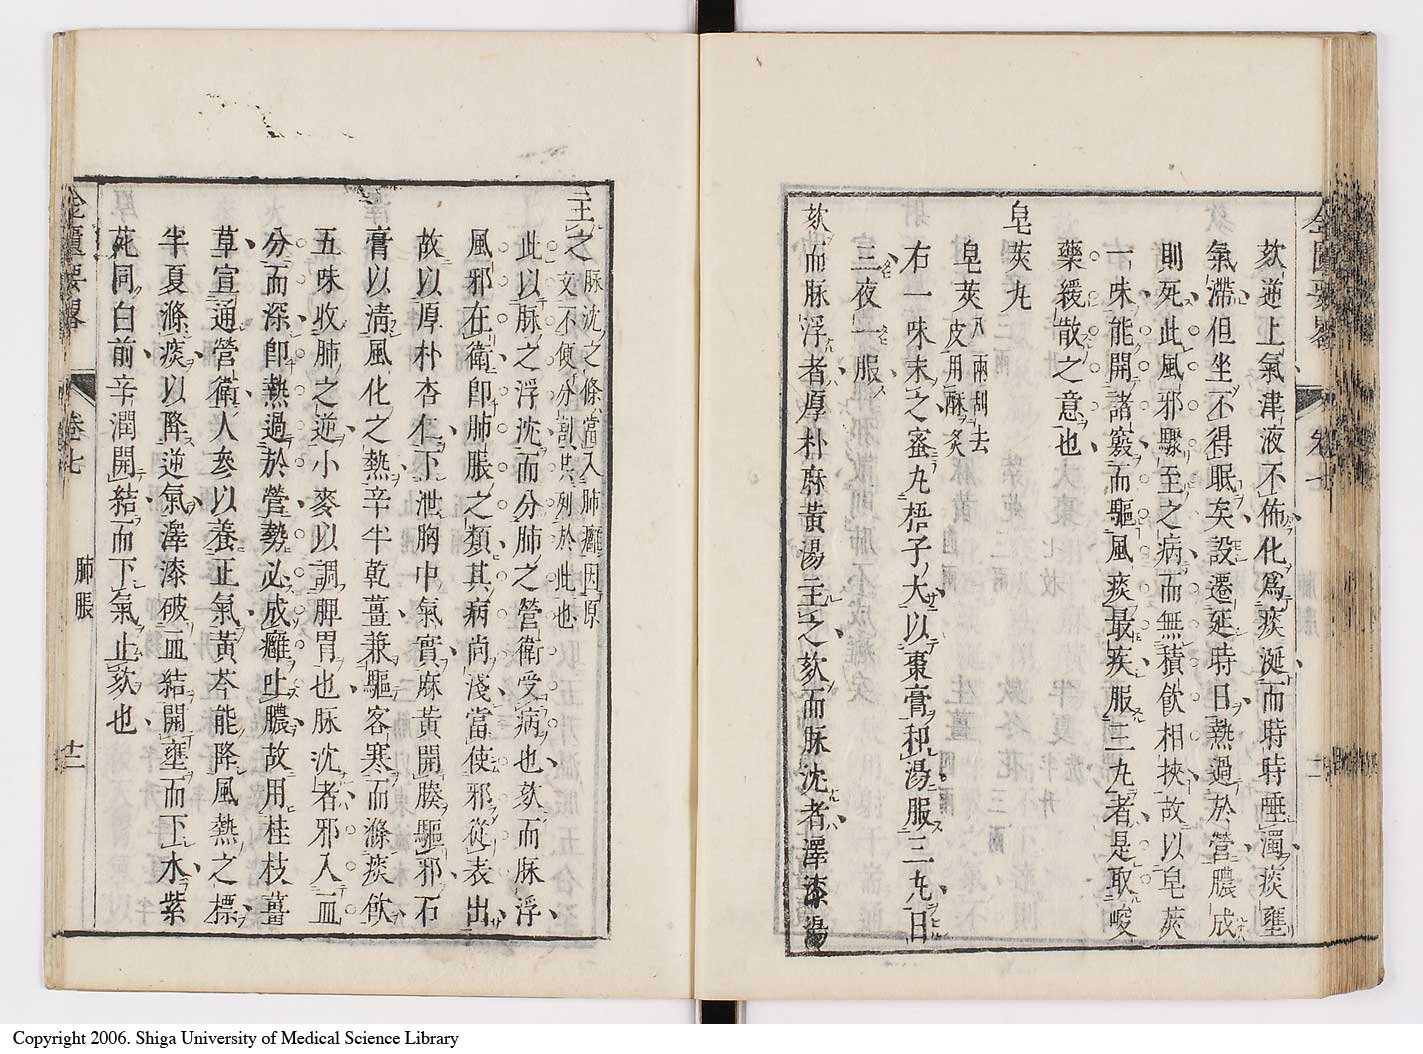 欬逆上氣津液不佈化爲痰涎而時時唾濁痰壅
氣滯但坐不得眠矣設遷延時日熱過於營膿成
則死此風邪驟至之病而無積飲相挾故以皂莢
一味能開諸竅而驅風痰最疾服三丸者是取峻
藥緩散之意也
皂莢丸
皂莢八兩刮去皮用酥炙
右一味末之蜜丸梧子大以棗膏和湯服三丸日
三夜一服
欬而脉浮者厚朴麻黃湯主之欬而脉沈者澤漆湯
金匱要畧
卷七
主之脉沈之條當入肺癰因原文不便分割共列於此也
此以脉之浮沈而分肺之營衛受病也欬而脉浮
風邪在衛卽肺脹之類其病尚淺當使邪從表出
故以厚朴杏仁下泄胸中氣實麻黃開腠驅邪石
膏以淸風化之熱辛半乾薑兼驅客寒而滌痰飲
五味收肺之逆小麥以調脾胃也脉沈者邪入血
分而深卽熱過於營勢必成癰吐膿故用桂枝薑
草宣通營衛人參以養正氣黃芩能降風熱之標
半夏滌痰以降逆氣澤漆破血結開壅而下水紫
菀同白前辛潤開結而下氣止欬也
金匱要畧
卷七
肺脹
十二
Copyright 2006. Shiga University of Medical Science Library